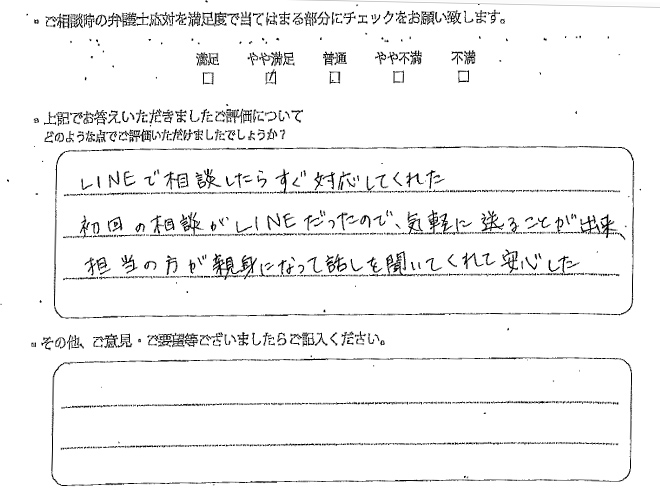 ▫ご相談時の弁護士応対を満足度で当てはまる部分にチェックをお願い致します。
満足 やや満足 普通 やや不満 不満
□ ☑ □ □ □
▫上記でお答えいただきましたご評価について
どのような点でご評価いただけましたでしょうか？
LINEで相談したらすぐ対応してくれた
初回の相談がLINEだったので、気軽に送ることが出来、
担当の方が親身になって話しを聞いてくれて安心した
▫その他、ご意見・ご要望等ございましたらご記入ください。